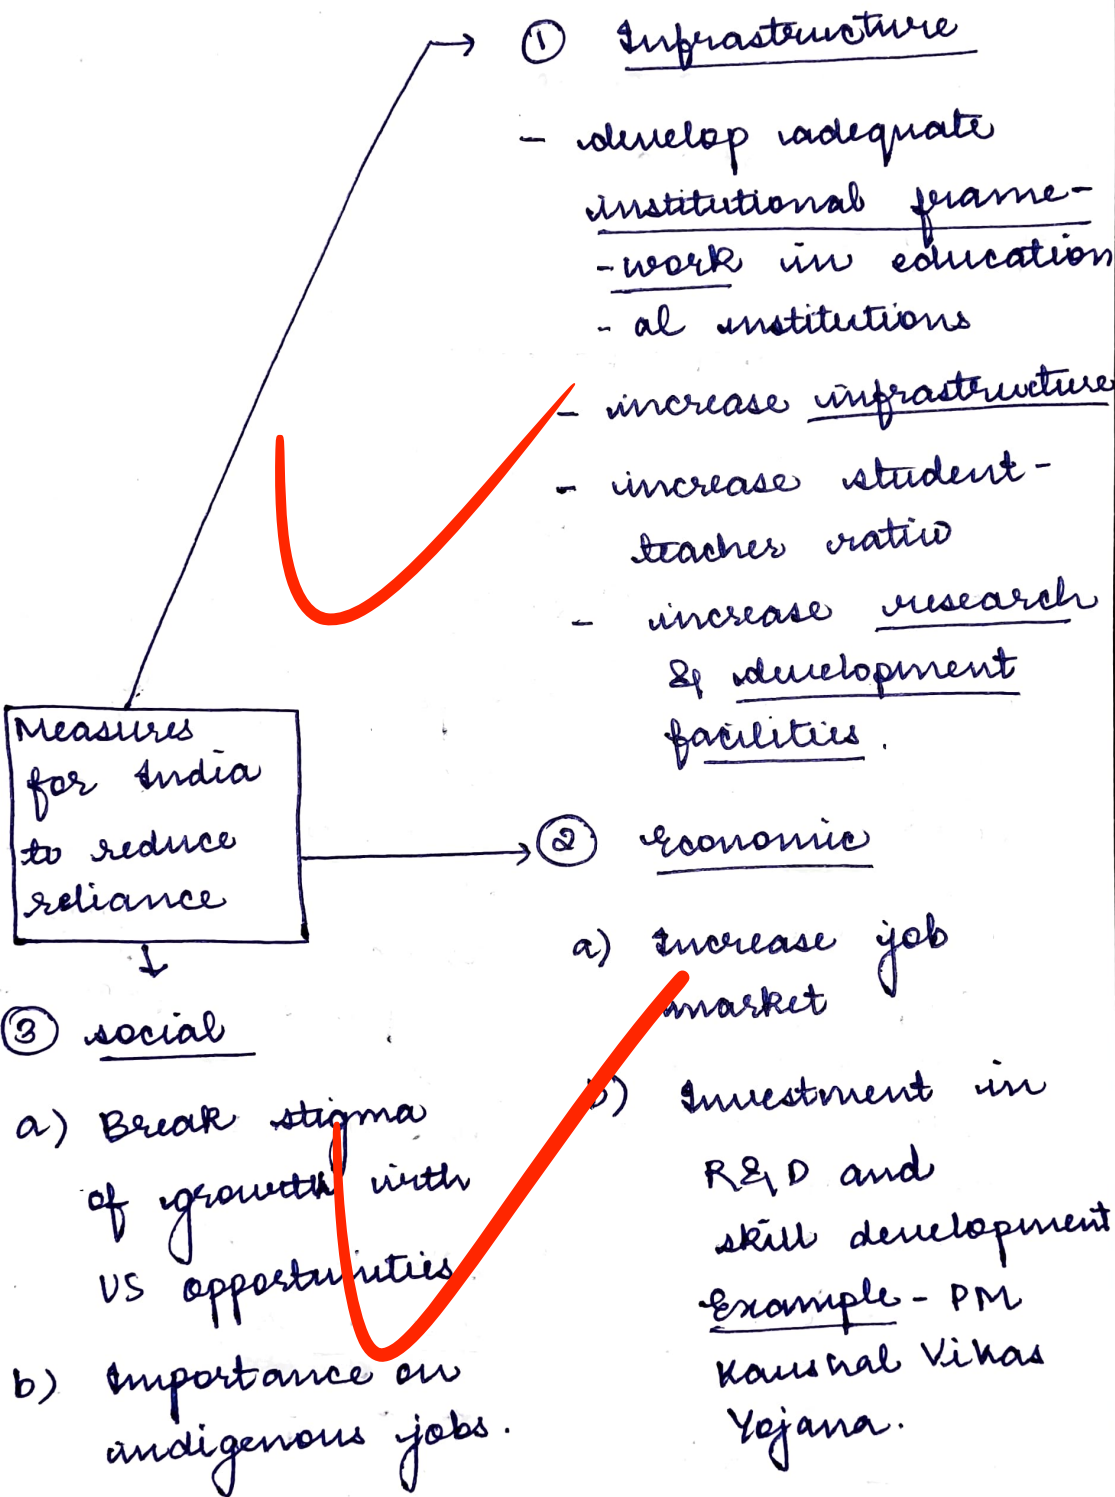 ① Infrastructure
- develop adequate
institutional frame-
-work in education
- al institutions
- increase infrastructure
- increase student-
teacher ratio
- increase research
& development
facilities.
Measures
for India
to reduce
reliance
② Economic
a) Increase job
market
b) Investment in
R&D and
skill development
Example - PM
Kaushal Vikas
Yojana.
③ social
a) Break stigma
of growth with
US opportunities
b) Importance on
indigenous jobs.